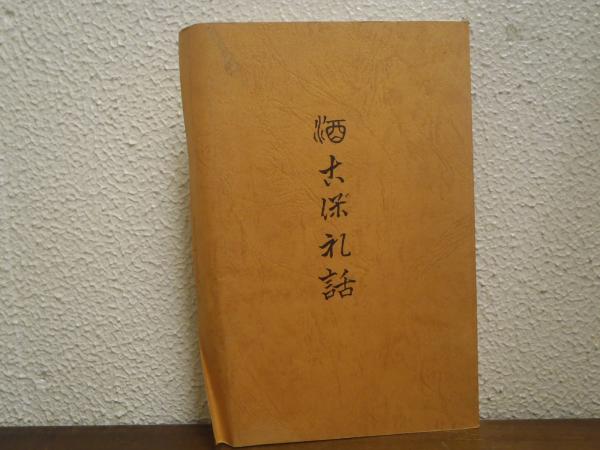 酒古保礼話